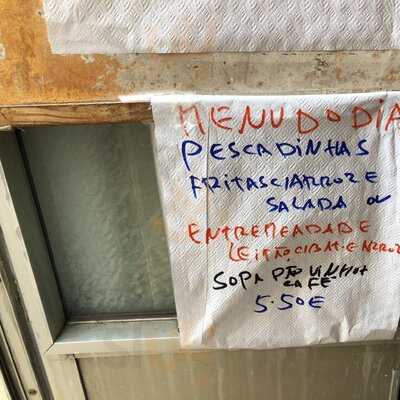 MENU DO DIA
PESCADINHAS
FRITAS C/ARROZ E
SALADA OU
ENTREMEADA DE
LEITÃO, C/BAT. E ARROZ
SOPA PÃO VINHO +
CAFÉ
5.50€